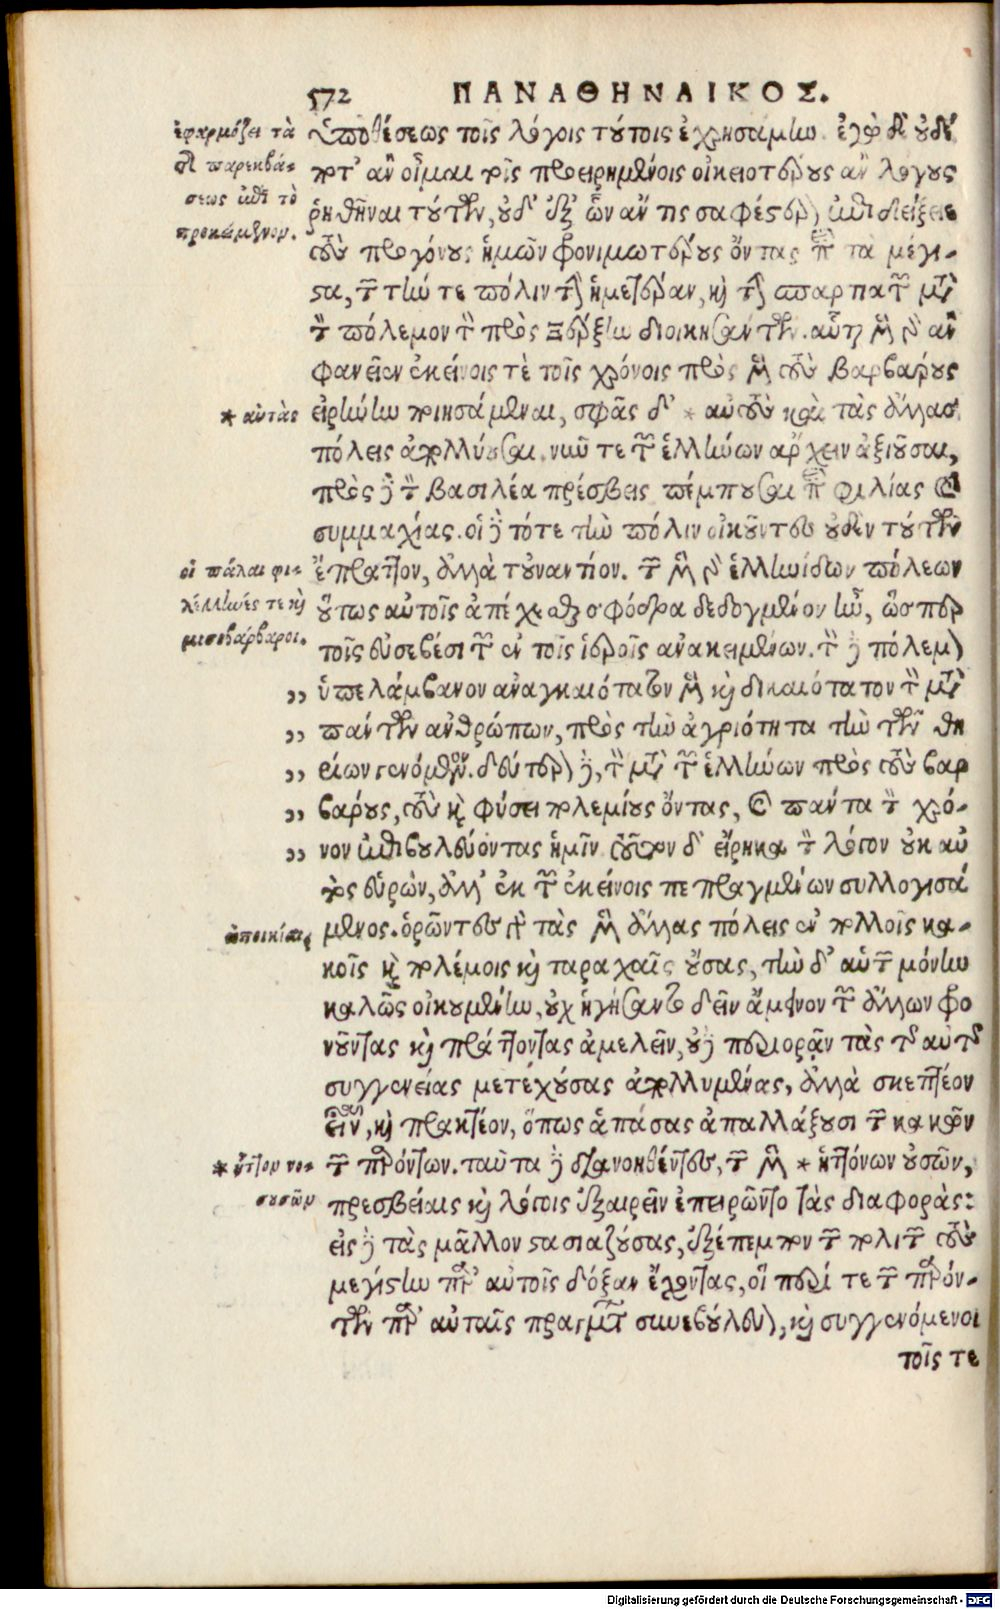 572 ΠΑΝΑΘΗΝΑΙΚΟΣ.
ἐφαρμόζει τὰ
τῆς παρεκβά-
σεως ἐπὶ τὸ
προκείμενον.
ὑποθέσεως τοῖς λόγοις τούτοις ἐχρησάμην. ἐγὼ δ' οὐδέ
ποτ' ἂν οἶμαι τοῖς προειρημένοις οἰκειοτέρους ἂν λόγους
ῥηθῆναι τούτων, οὐδ' ἐξ ὧν ἄν τις σαφέστερον ἐπιδείξειε
τοὺς προγόνους ἡμῶν φρονιμωτέρους ὄντας περὶ τὰ μέγι-
στα, τῶν τήν τε πόλιν τὴν ἡμετέραν, καὶ τὴν σπαρτιατῶν μετὰ
τὸν πόλεμον τὸν πρὸς Ξέρξην διοικησάντων. αὗται μὲν γὰρ ἂν
φανεῖεν ἐκείνοις τὲ τοῖς χρόνοις πρὸς μὲν τοὺς βαρβάρους
* αὑτὰς
εἰρήνην ποιησάμεναι, σφᾶς δ' * αὐτοὺς καὶ τὰς ἄλλας
πόλεις ἀπολλύουσαι. νῦν τε τῶν ἑλλήνων ἄρχειν ἀξιοῦσαι,
πρὸς δὲ τὸν βασιλέα πρέσβεις πέμπουσαι περὶ φιλίας καὶ
συμμαχίας. οἱ δὲ τότε τὴν πόλιν οἰκοῦντες οὐδὲν τούτων
οἱ πάλαι φι-
λέλληνές τε καὶ
μισοβάρβαροι.
ἔπραττον, ἀλλὰ τοὐναντίον. τῶν μὲν γὰρ ἑλληνίδων πόλεων
οὕτως αὐτοῖς ἀπέχεσθαι σφόδρα δεδογμένον ἦν, ὥσπερ
τοῖς εὐσεβέσι τῶν ἐν τοῖς ἱεροῖς ἀνακειμένων. τὸν δὲ πόλεμον
„ ὑπελάμβανον ἀναγκαιότατον μὲν καὶ δικαιότατον τὸν μετὰ
„ πάντων ἀνθρώπων, πρὸς τὴν ἀγριότητα τὴν τῶν θη
„ ρίων γενόμενον. δεύτερον δὲ, τὸν μετὰ τῶν ἑλλήνων πρὸς τοὺς βαρ
„ βάρους, τοὺς καὶ φύσει πολεμίους ὄντας, καὶ πάντα τὸν χρό-
„ νον ἐπιβουλεύοντας ἡμῖν. τοῦτον δ' εἴρηκα τὸν λόγον οὐκ αὐ
τὸς εὑρὼν, ἀλλ' ἐκ τῶν ἐκείνοις πεπραγμένων συλλογισά
ἀποικίαι
μενος. ὁρῶντες γὰρ τὰς μὲν ἄλλας πόλεις ἐν πολλοῖς κα-
κοῖς καὶ πολέμοις καὶ ταραχαῖς οὔσας, τὴν δ' αὑτῶν μόνην
καλῶς οἰκουμένην, οὐχ ἡγήσαντο δεῖν ἄμεινον τῶν ἄλλων φρο
νοῦντας καὶ πράττοντας ἀμελεῖν, οὐδὲ περιορᾶν τὰς τῆς αὐτῆς
συγγενείας μετεχούσας ἀπολλυμένας, ἀλλὰ σκεπτέον
εἶναι, καὶ πρακτέον, ὅπως ἁπάσας ἀπαλλάξουσι τῶν κακῶν
* ἧττον νο-
σουσῶν
τῶν παρόντων. ταῦτα δὲ διανοηθέντες, τῶν μὲν * ἡττόνων οὐσῶν,
πρεσβείαις καὶ λόγοις ἐξαιρεῖν ἐπειρῶντο τὰς διαφοράς:
εἰς δὲ τὰς μᾶλλον στασιαζούσας, ἐξέπεμπον τῶν πολιτῶν τοὺς
μεγίστην παρ' αὐτοῖς δόξαν ἔχοντας, οἳ περί τε τῶν παρόν-
των παρ' αὐταῖς πραγμάτων συνεβούλευον, καὶ συγγενόμενοι
τοῖς τε
Digitalisierung gefördert durch die Deutsche Forschungsgemeinschaft - DFG